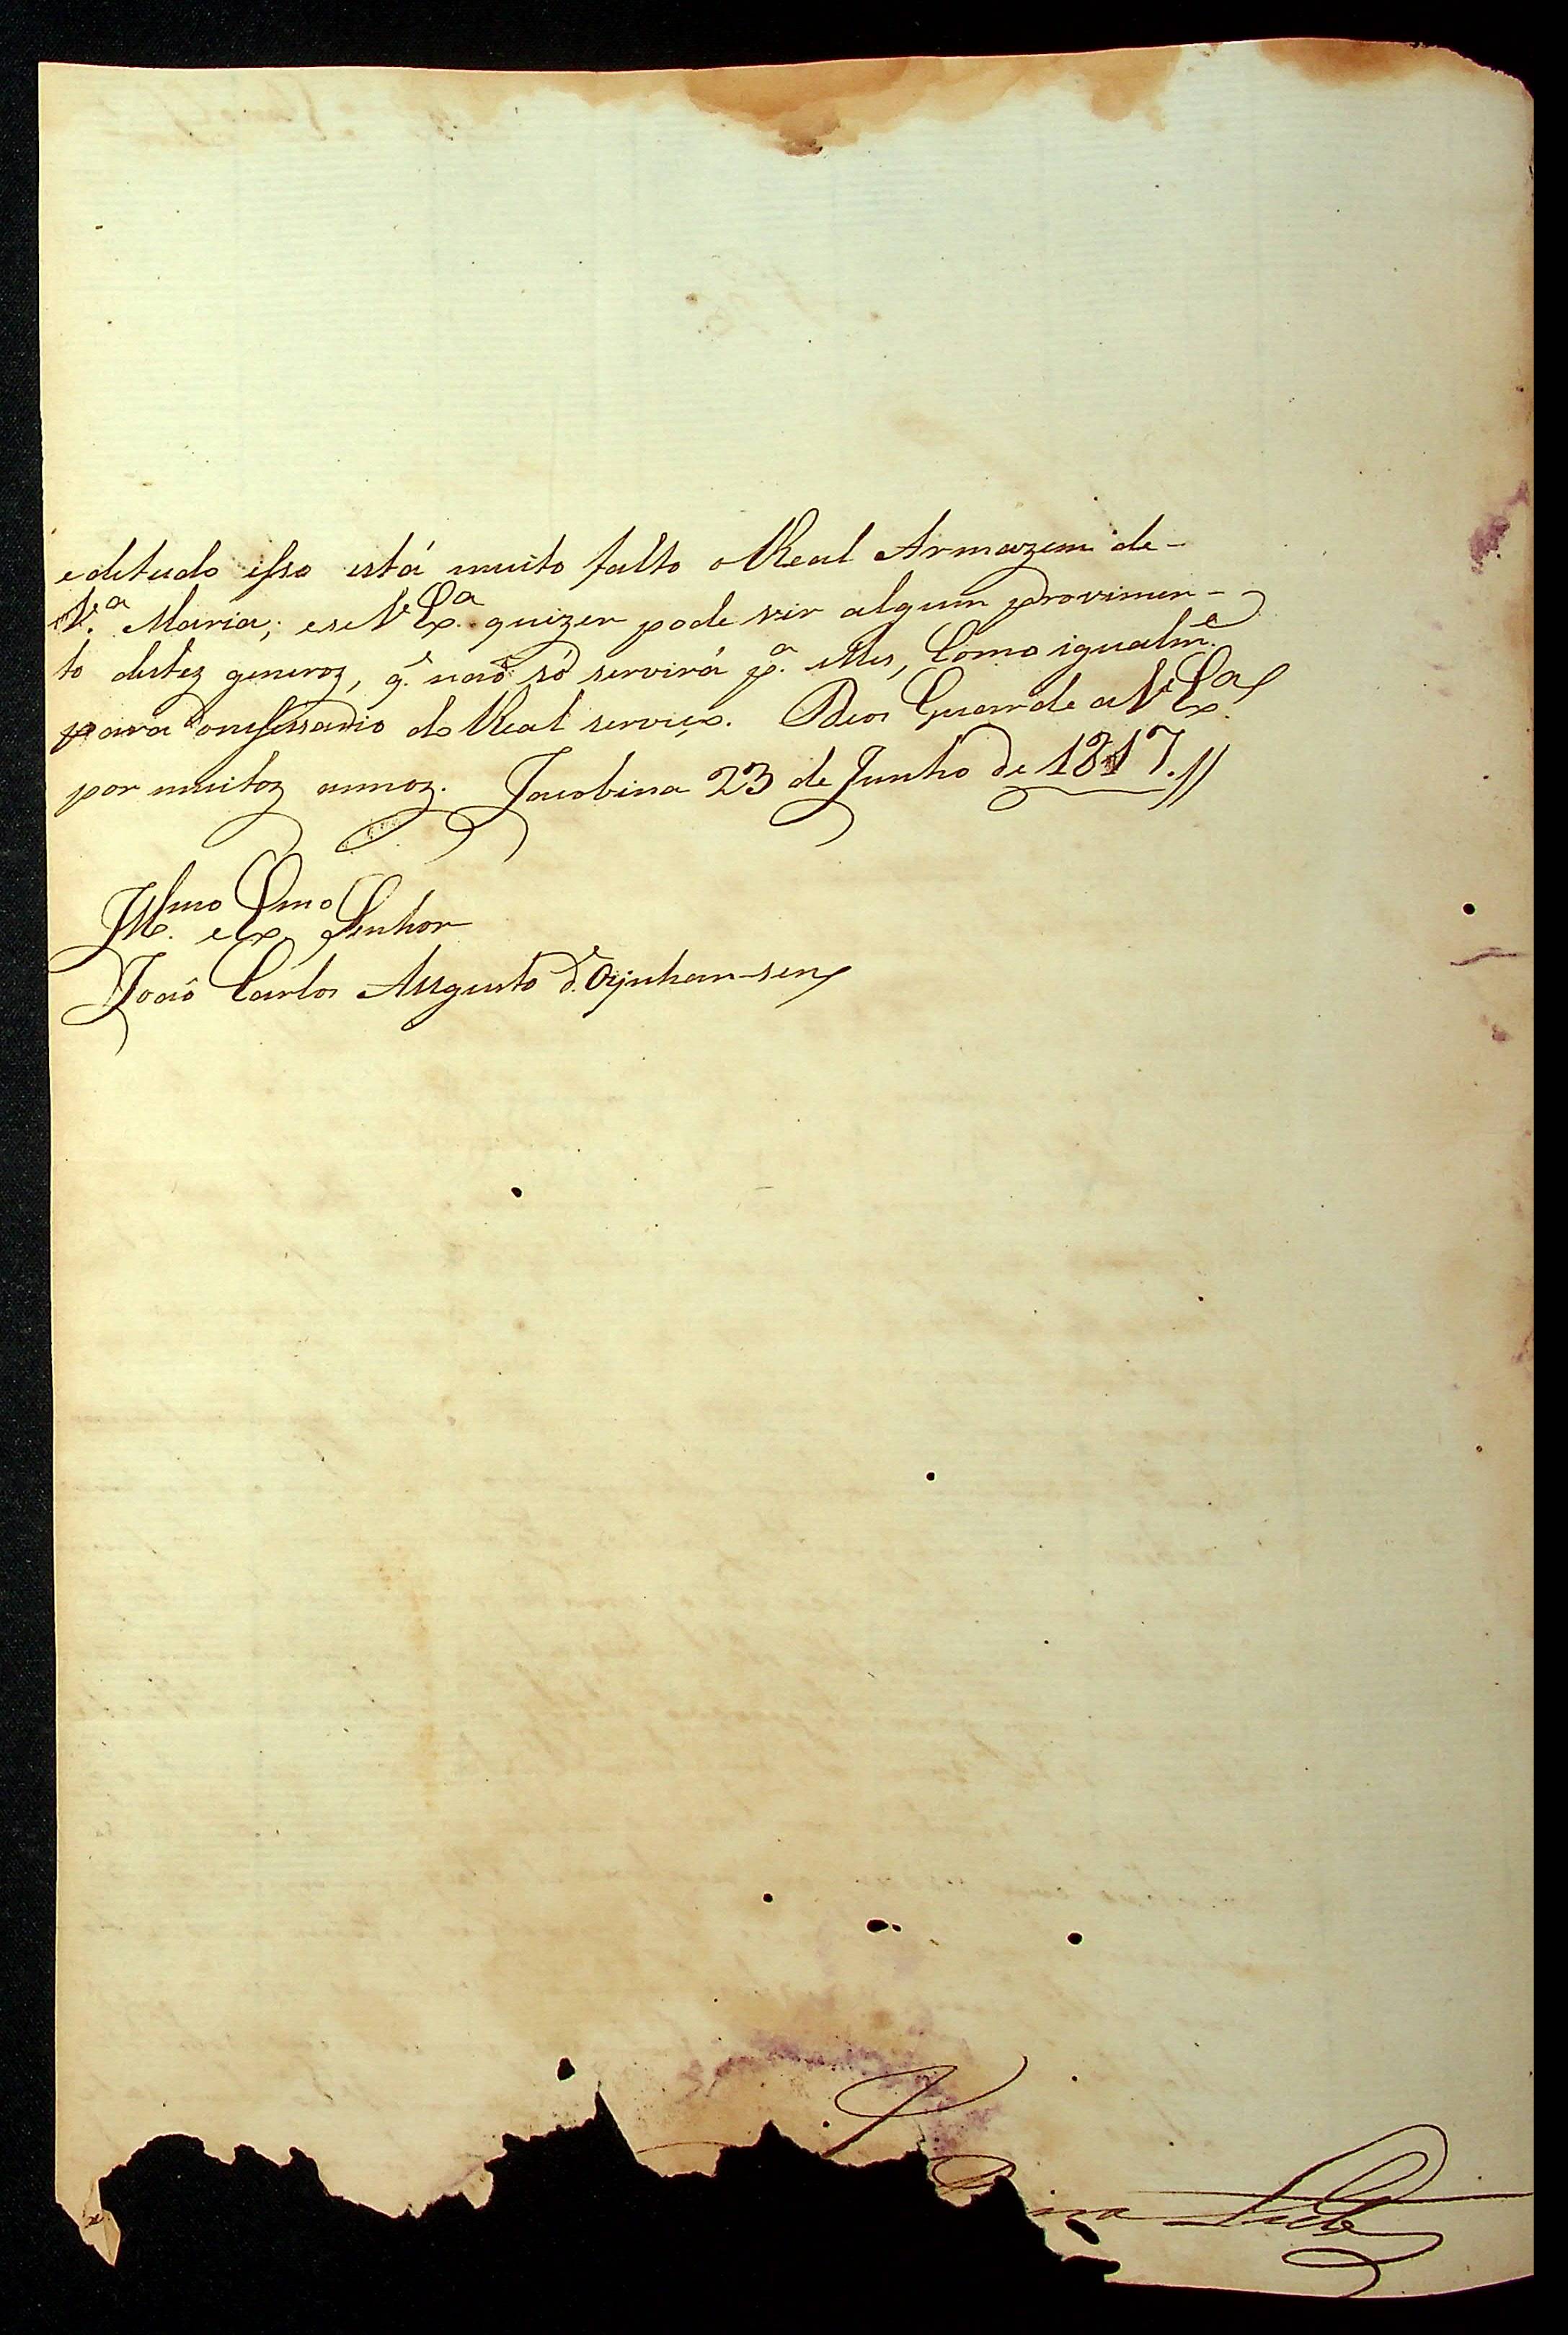 e detudo isso está muito falto o Real Armazem de-
V.ª Maria; e se V Ex.ª quizer pode vir algum provimen-
to destez generoz, q.ᵉ naõ só servirá p.ª elles, Como igualm.ᵉ
para o do Real serviço. Deos Guarde a V Ex.ª
por muitoz annoz. Jacobina 23 de Junho de 1817.//
Ill.ᵐᵒ e Ex.ᵐᵒ Senhor
Joaõ Carlos Augusto d'Oÿnhausen
Leite